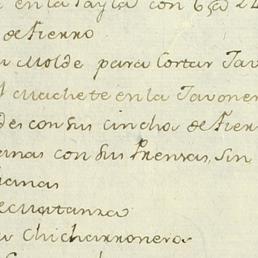 en la Payla con 6@ 2
de Fierro
Molde para Cortar Jav
Machete en la Javoner
des con sus cincho de Fierr
anas con sus Prensas, sin
anas
de Matanza
Chicharronera